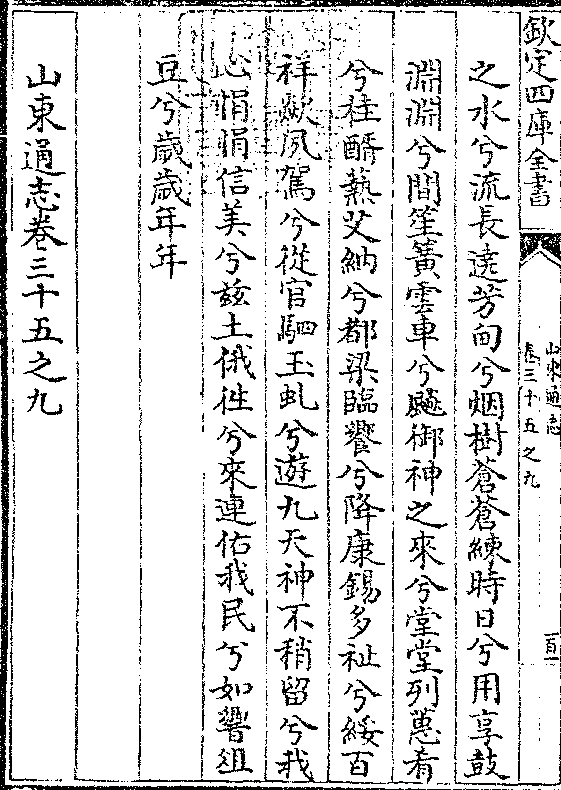 欽定四庫全書
山東通志
卷三十五之九
百
之水兮流長遶芳甸兮烟樹蒼蒼練時日兮用享鼓
淵淵兮間笙簧雲車兮飈御神之來兮堂堂列蕙肴
兮桂醑爇艾蒳兮都梁臨饗兮降康錫多祉兮綏百
祥歘夙駕兮從官駟玉虬兮遊九天神不稍留兮我
心悁悁信美兮兹土俄徃兮來連佑我民兮如響俎
豆兮歲歲年年
山東通志卷三十五之九